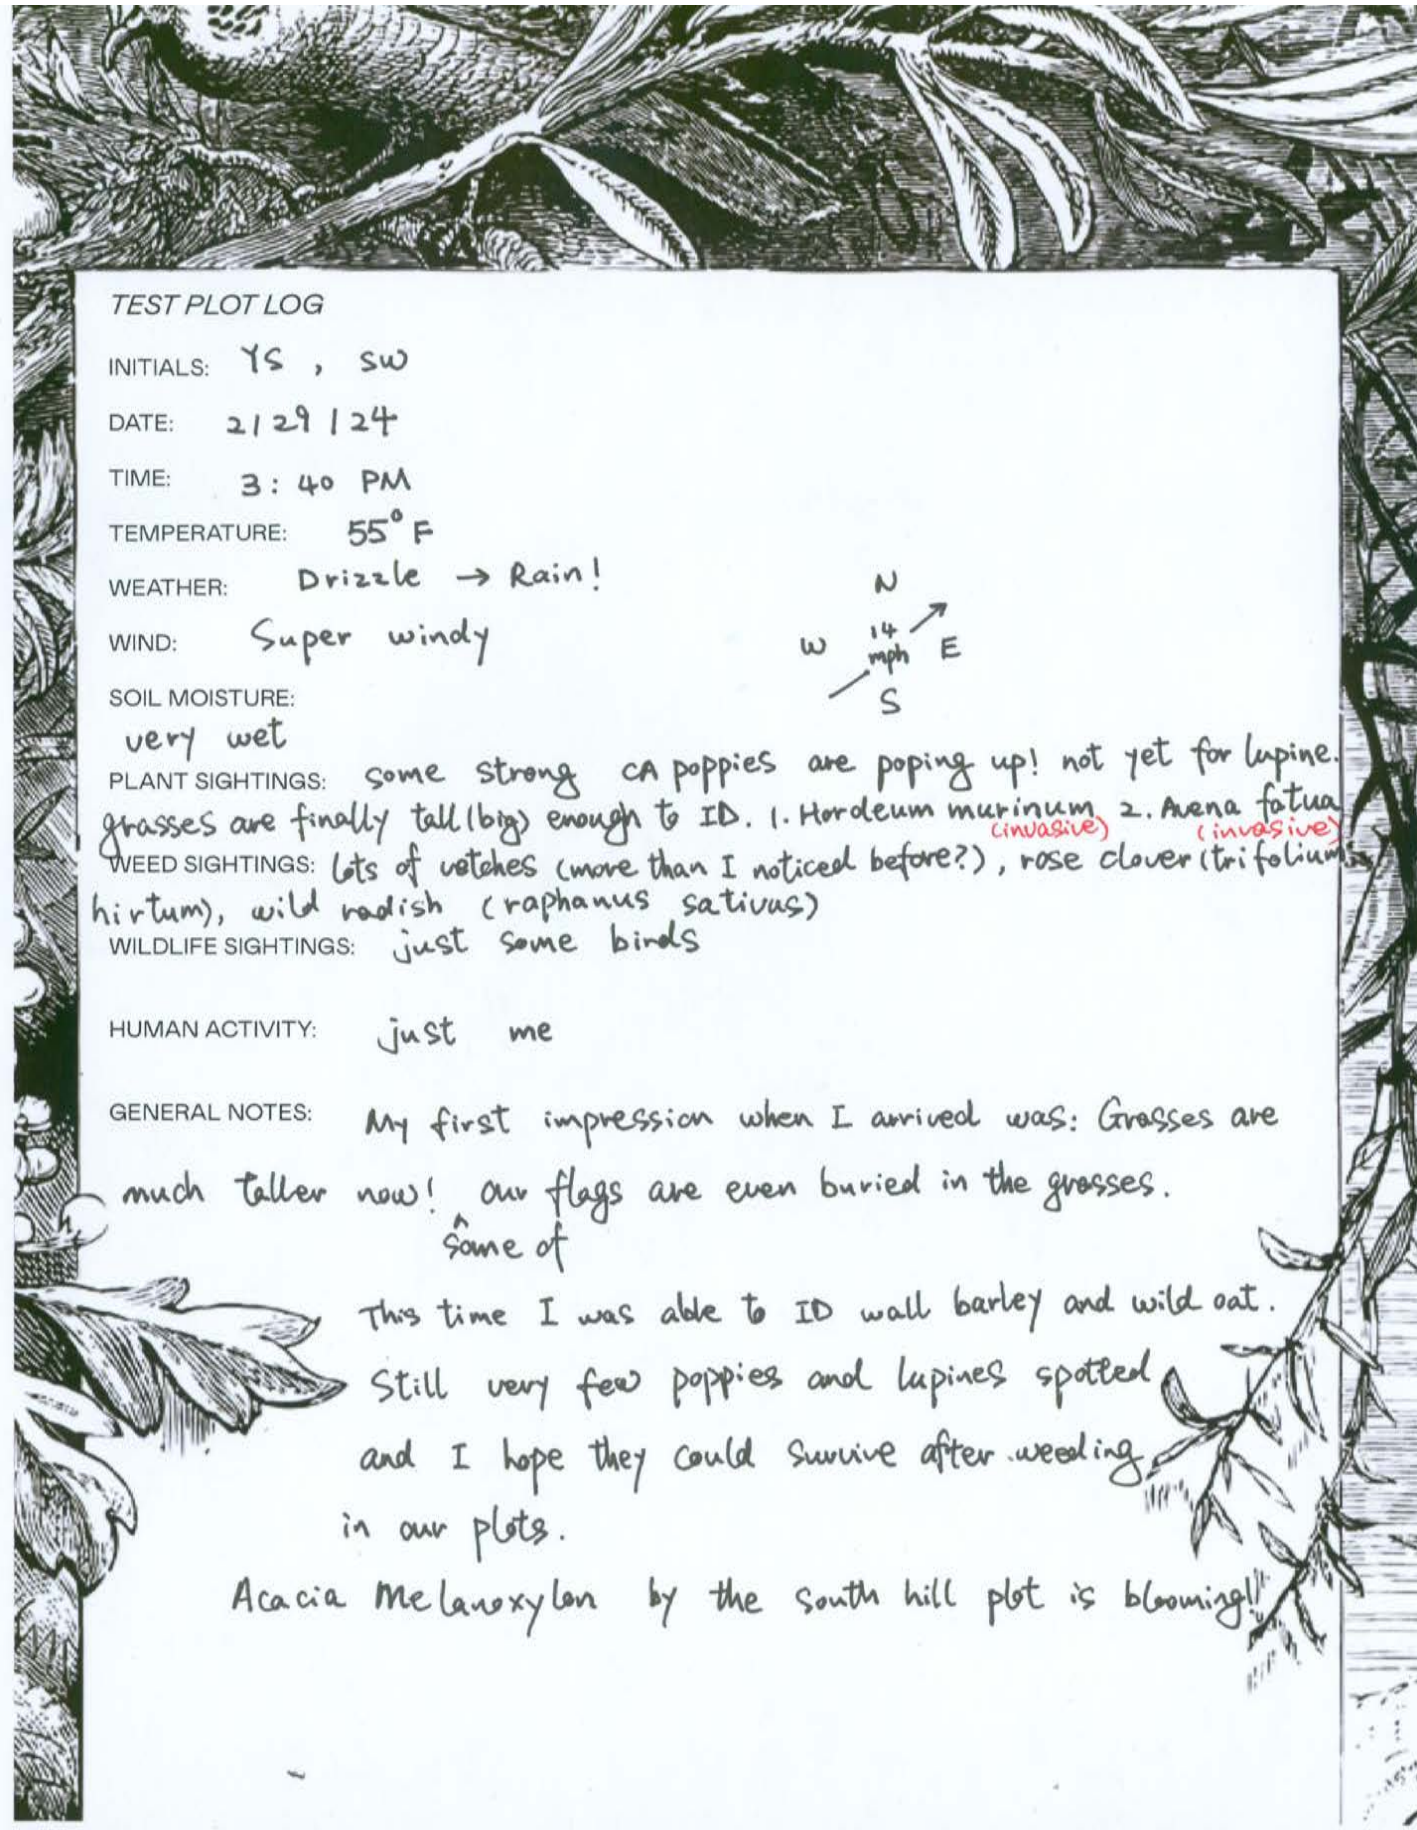 TEST PLOT LOG
INITIALS: YS, SW
DATE: 2/29/24
TIME: 3:40 PM
TEMPERATURE: 55°F
WEATHER: Drizzle → Rain!
N
WIND: Super windy
W 14 mph E
S
SOIL MOISTURE:
very wet
PLANT SIGHTINGS: some strong CA poppies are poping up! not yet for lupine.
grasses are finally tall (big) enough to ID. 1. Hordeum murinum 2. Avena fatua
(invasive) (invasive)
WEED SIGHTINGS: lots of vetches (more than I noticed before?), rose clover (trifolium
hirtum), wild radish (raphanus sativus)
WILDLIFE SIGHTINGS: just some birds
HUMAN ACTIVITY: just me
GENERAL NOTES: My first impression when I arrived was: Grasses are
much taller now! ^ our flags are even buried in the grasses.
some of
This time I was able to ID wall barley and wild oat.
Still very few poppies and lupines spotted
and I hope they could survive after weeding
in our plots.
Acacia Melanoxylon by the south hill plot is blooming!!